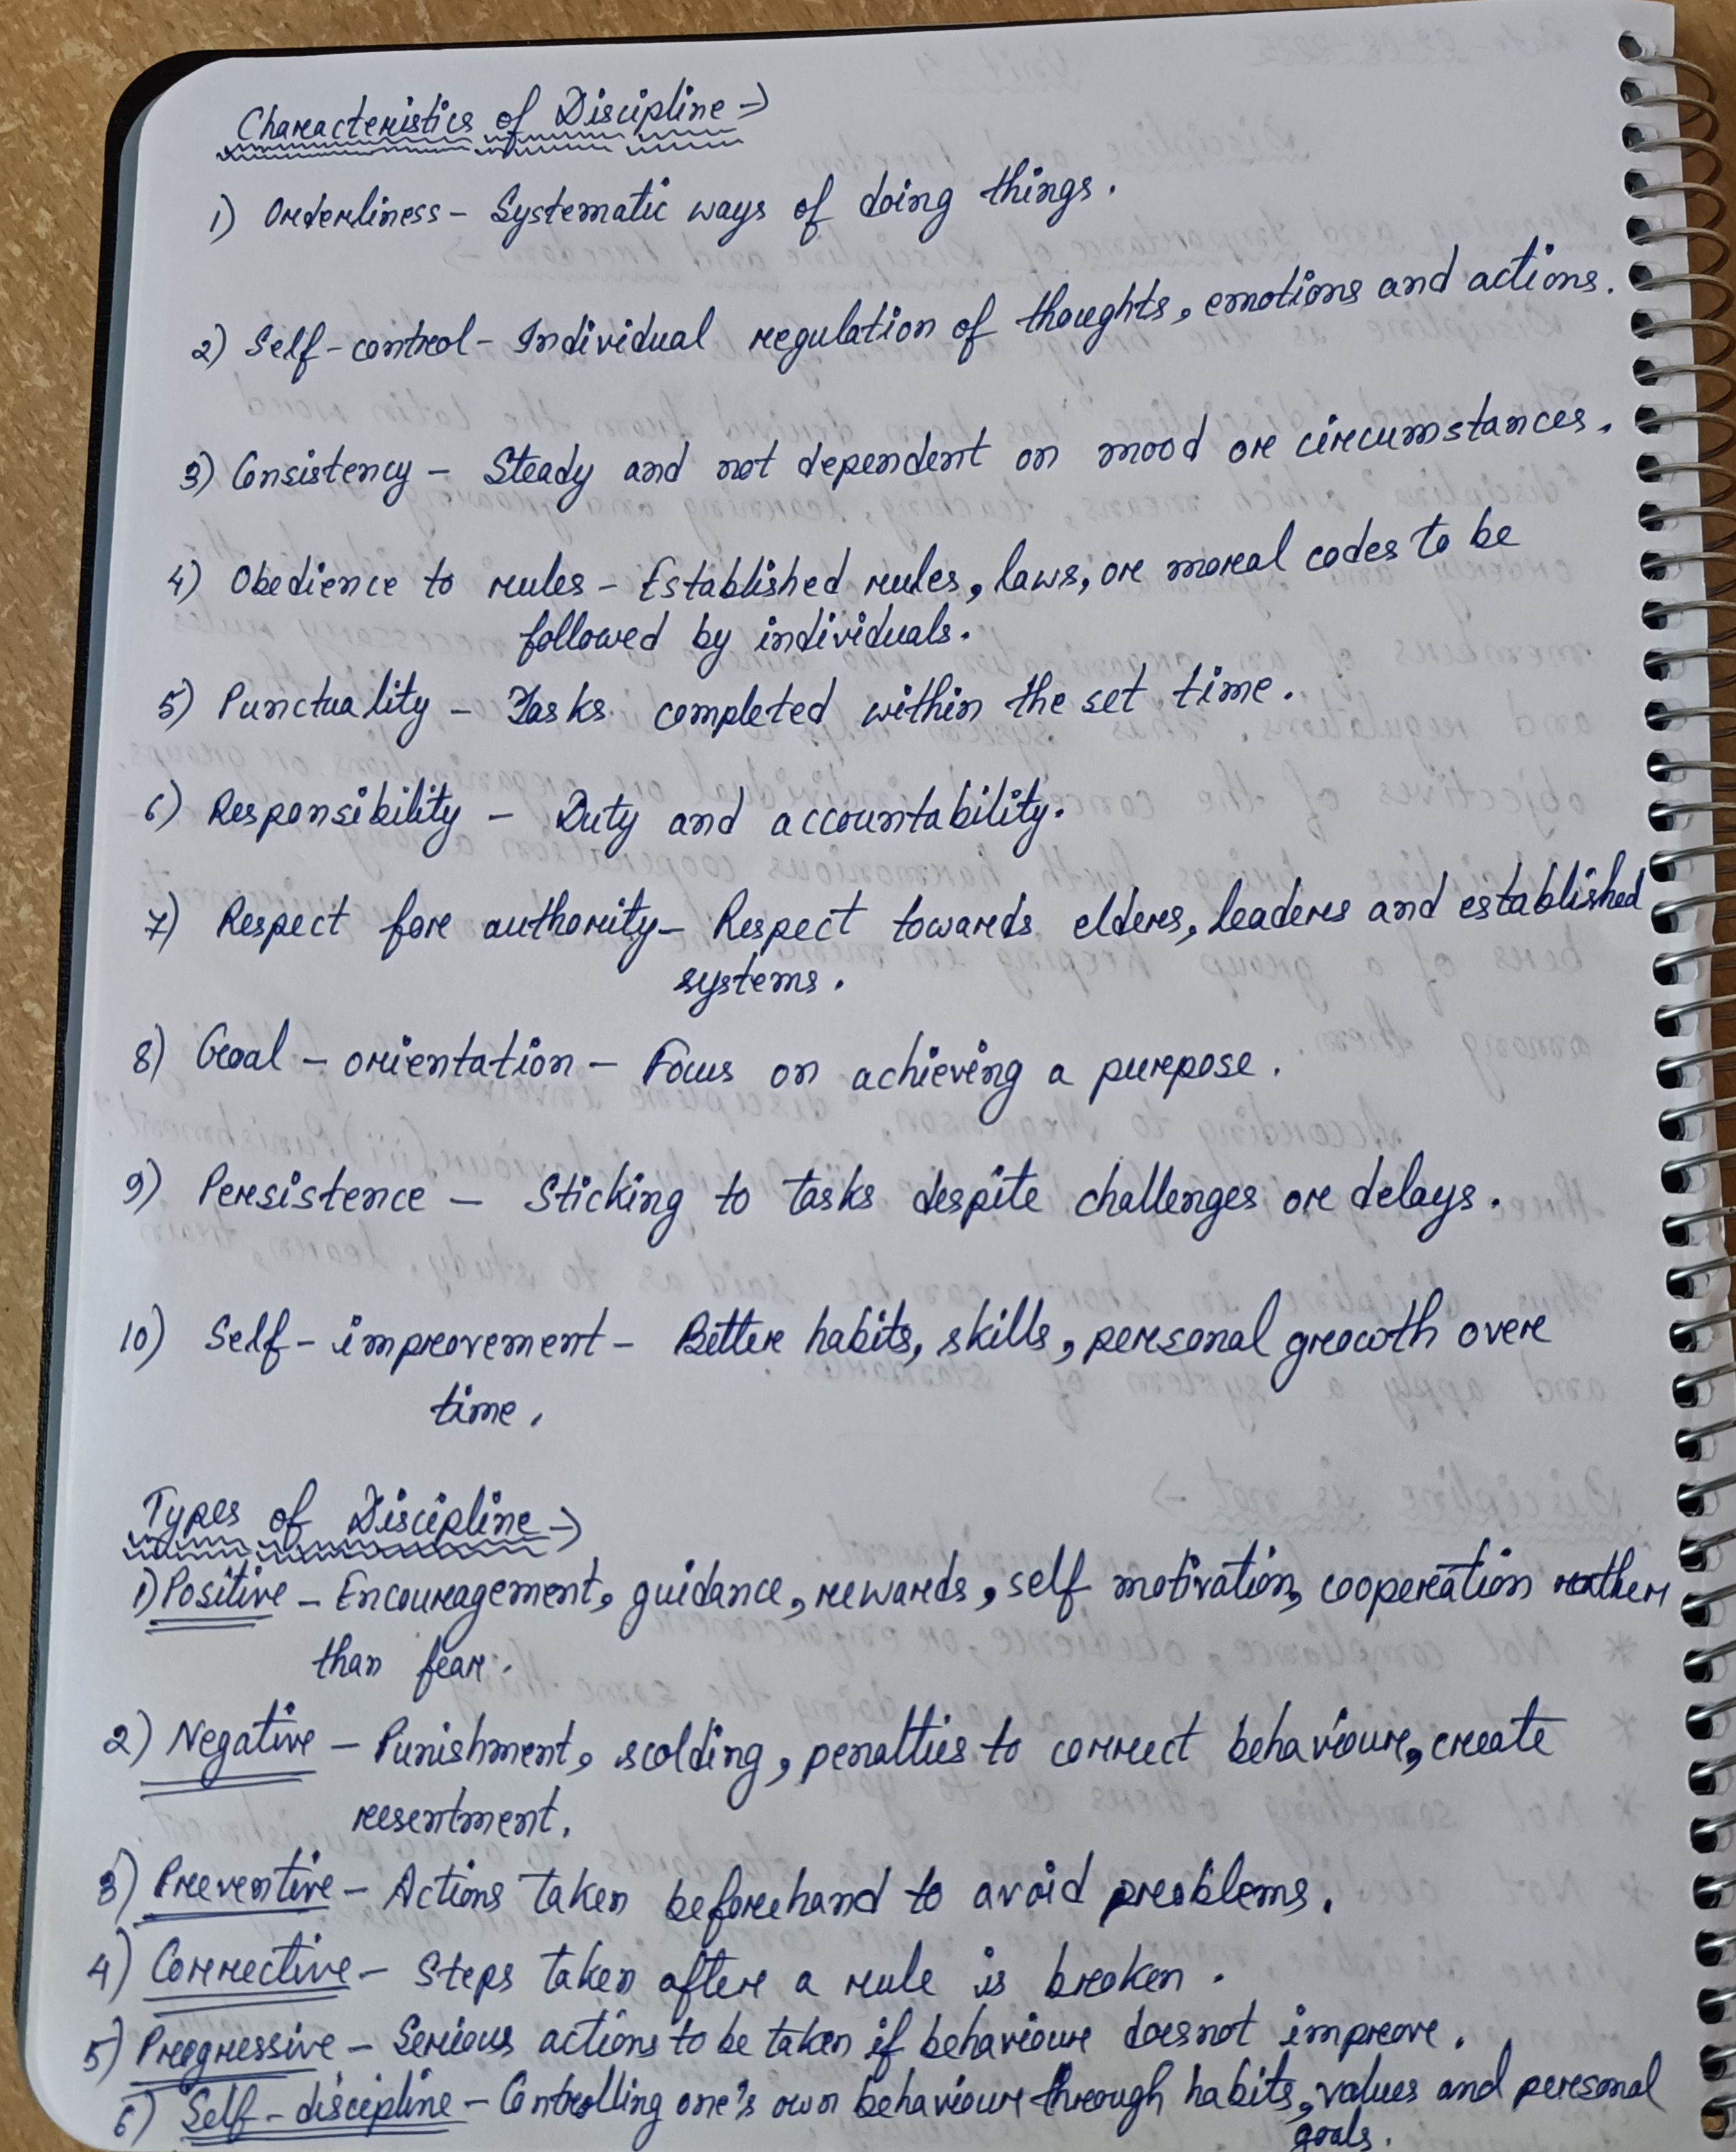 Characteristics of Discipline →
1) Orderliness - Systematic ways of doing things.
2) Self-control - Individual regulation of thoughts, emotions and actions.
3) Consistency - Steady and not dependent on mood or circumstances.
4) Obedience to rules - Established rules, laws, or moral codes to be
followed by individuals.
5) Punctuality - Tasks completed within the set time.
6) Responsibility - Duty and accountability.
7) Respect for authority - Respect towards elders, leaders and established
systems.
8) Goal - orientation - Focus on achieving a purpose.
9) Persistence - Sticking to tasks despite challenges or delays.
10) Self - improvement - Better habits, skills, personal growth over
time.
Types of Discipline →
1) Positive - Encouragement, guidance, rewards, self motivation, cooperation rather
than fear.
2) Negative - Punishment, scolding, penalties to correct behaviour, create
resentment.
3) Preventive - Actions taken beforehand to avoid problems.
4) Corrective - Steps taken after a rule is broken.
5) Progressive - Serious actions to be taken if behaviour doesnot improve.
6) Self-discipline - Controlling one's own behaviour through habits, values and personal
goals.